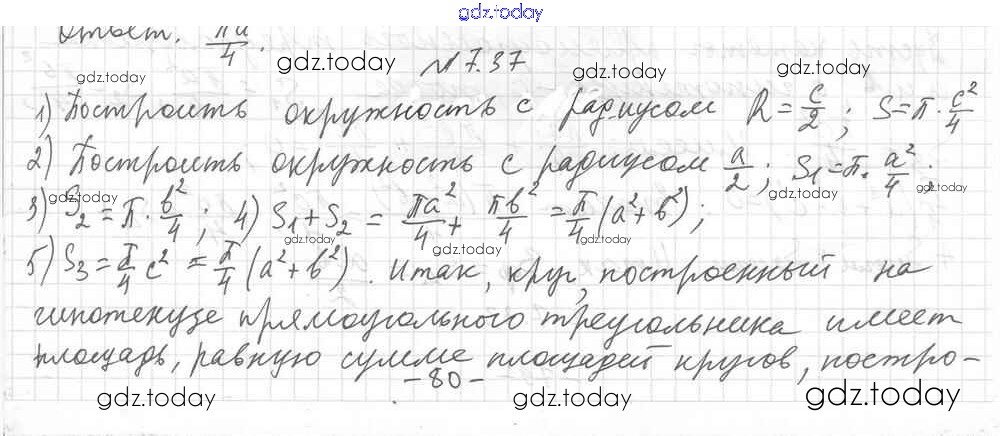 gdz.today
Ответ. πa/4.
gdz.today № 7.37 gdz.today
gdz.today
1) Построить окружность с радиусом R = c/2; S = π · c²/4
2) Построить окружность с радиусом a/2; S₁ = π · a²/4;
gdz.today gdz.today gdz.today
3) S₂ = π · b²/4; 4) S₁ + S₂ = πa²/4 + πb²/4 = π/4 (a² + b²);
gdz.today gdz.today gdz.today
5) S₃ = π/4 c² = π/4 (a² + b²). Итак, круг, построенный на
гипотенузе прямоугольного треугольника имеет
площадь, равную сумме площадей кругов, постро-
-80-
gdz.today gdz.today gdz.today